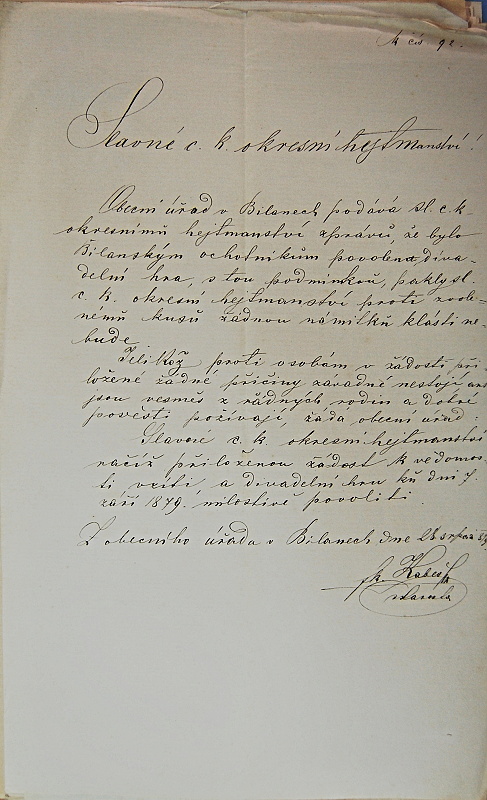 k čís 92.
Slavné c. k. okresní hejtmanství!
Obecní úřad v Bílanech podává sl. c. k.
okresnímu hejtmanství zprávu, že bylo
Bílanským ochotníkům povolena diva-
delní hra, s tou podmínkou, pakly sl.
c. k. okresní hejtmanství proti zvole-
nému kusů žádnou námitků klásti ne-
bude.
Jelikož proti osobám v žádosti při-
ložené žádné příčiny závadné nestojí
jsou vesměs z řádných rodin a dobré
pověsti požívají, žádá obecní úřad:
Slavné c. k. okresní hejtmanství
račiž přiloženou žádost k vědomos-
ti vzíti a divadelní hru ků dni 7.
září 1879, milostivě povoliti
Z obecního úřadu v Bílanech dne 28 srpna
starosta